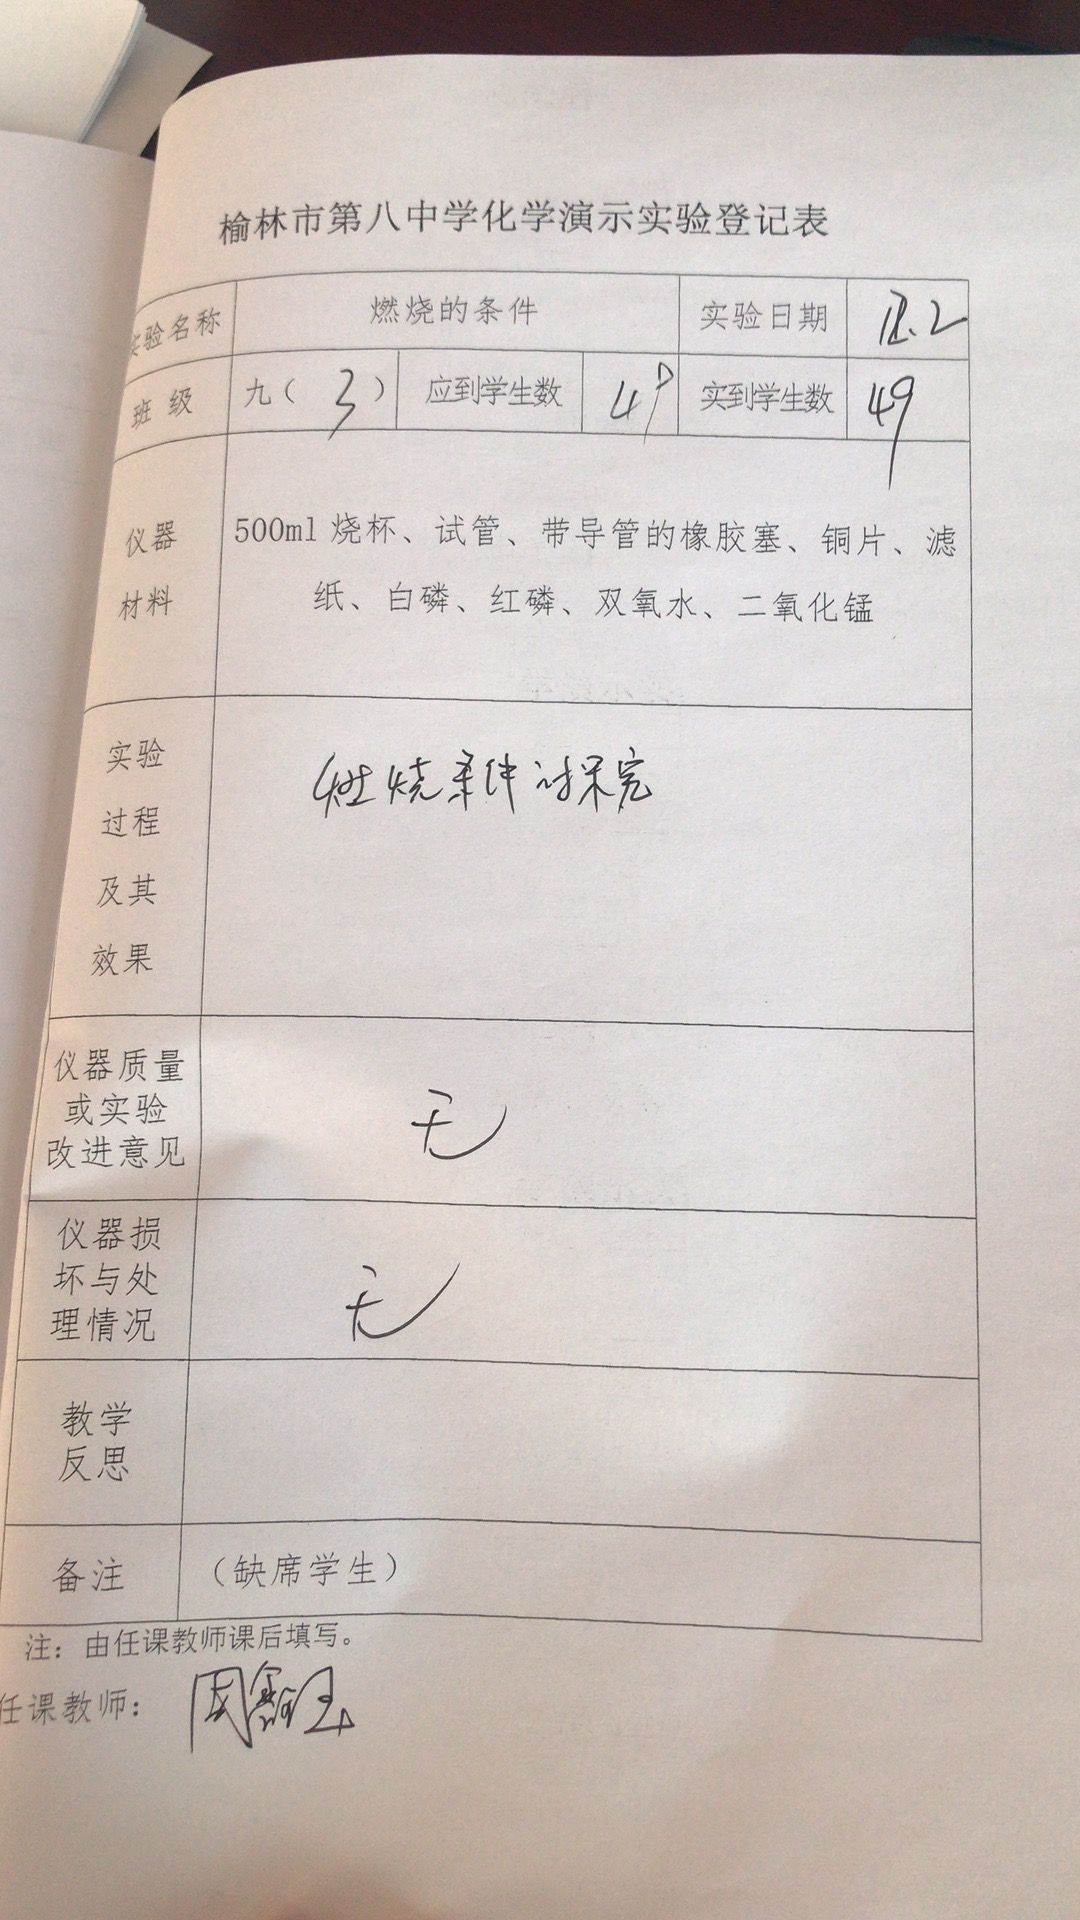 榆林市第八中学化学演示实验登记表
实验名称 燃烧的条件 实验日期 12.2
班级 九（3） 应到学生数 49 实到学生数 49
仪器
材料
500ml 烧杯、试管、带导管的橡胶塞、铜片、滤
纸、白磷、红磷、双氧水、二氧化锰
实验
过程
及其
效果
燃烧条件讨探究
仪器质量
或实验
改进意见
无
仪器损
坏与处
理情况
无
教学
反思
备注 （缺席学生）
注：由任课教师课后填写。
任课教师：周